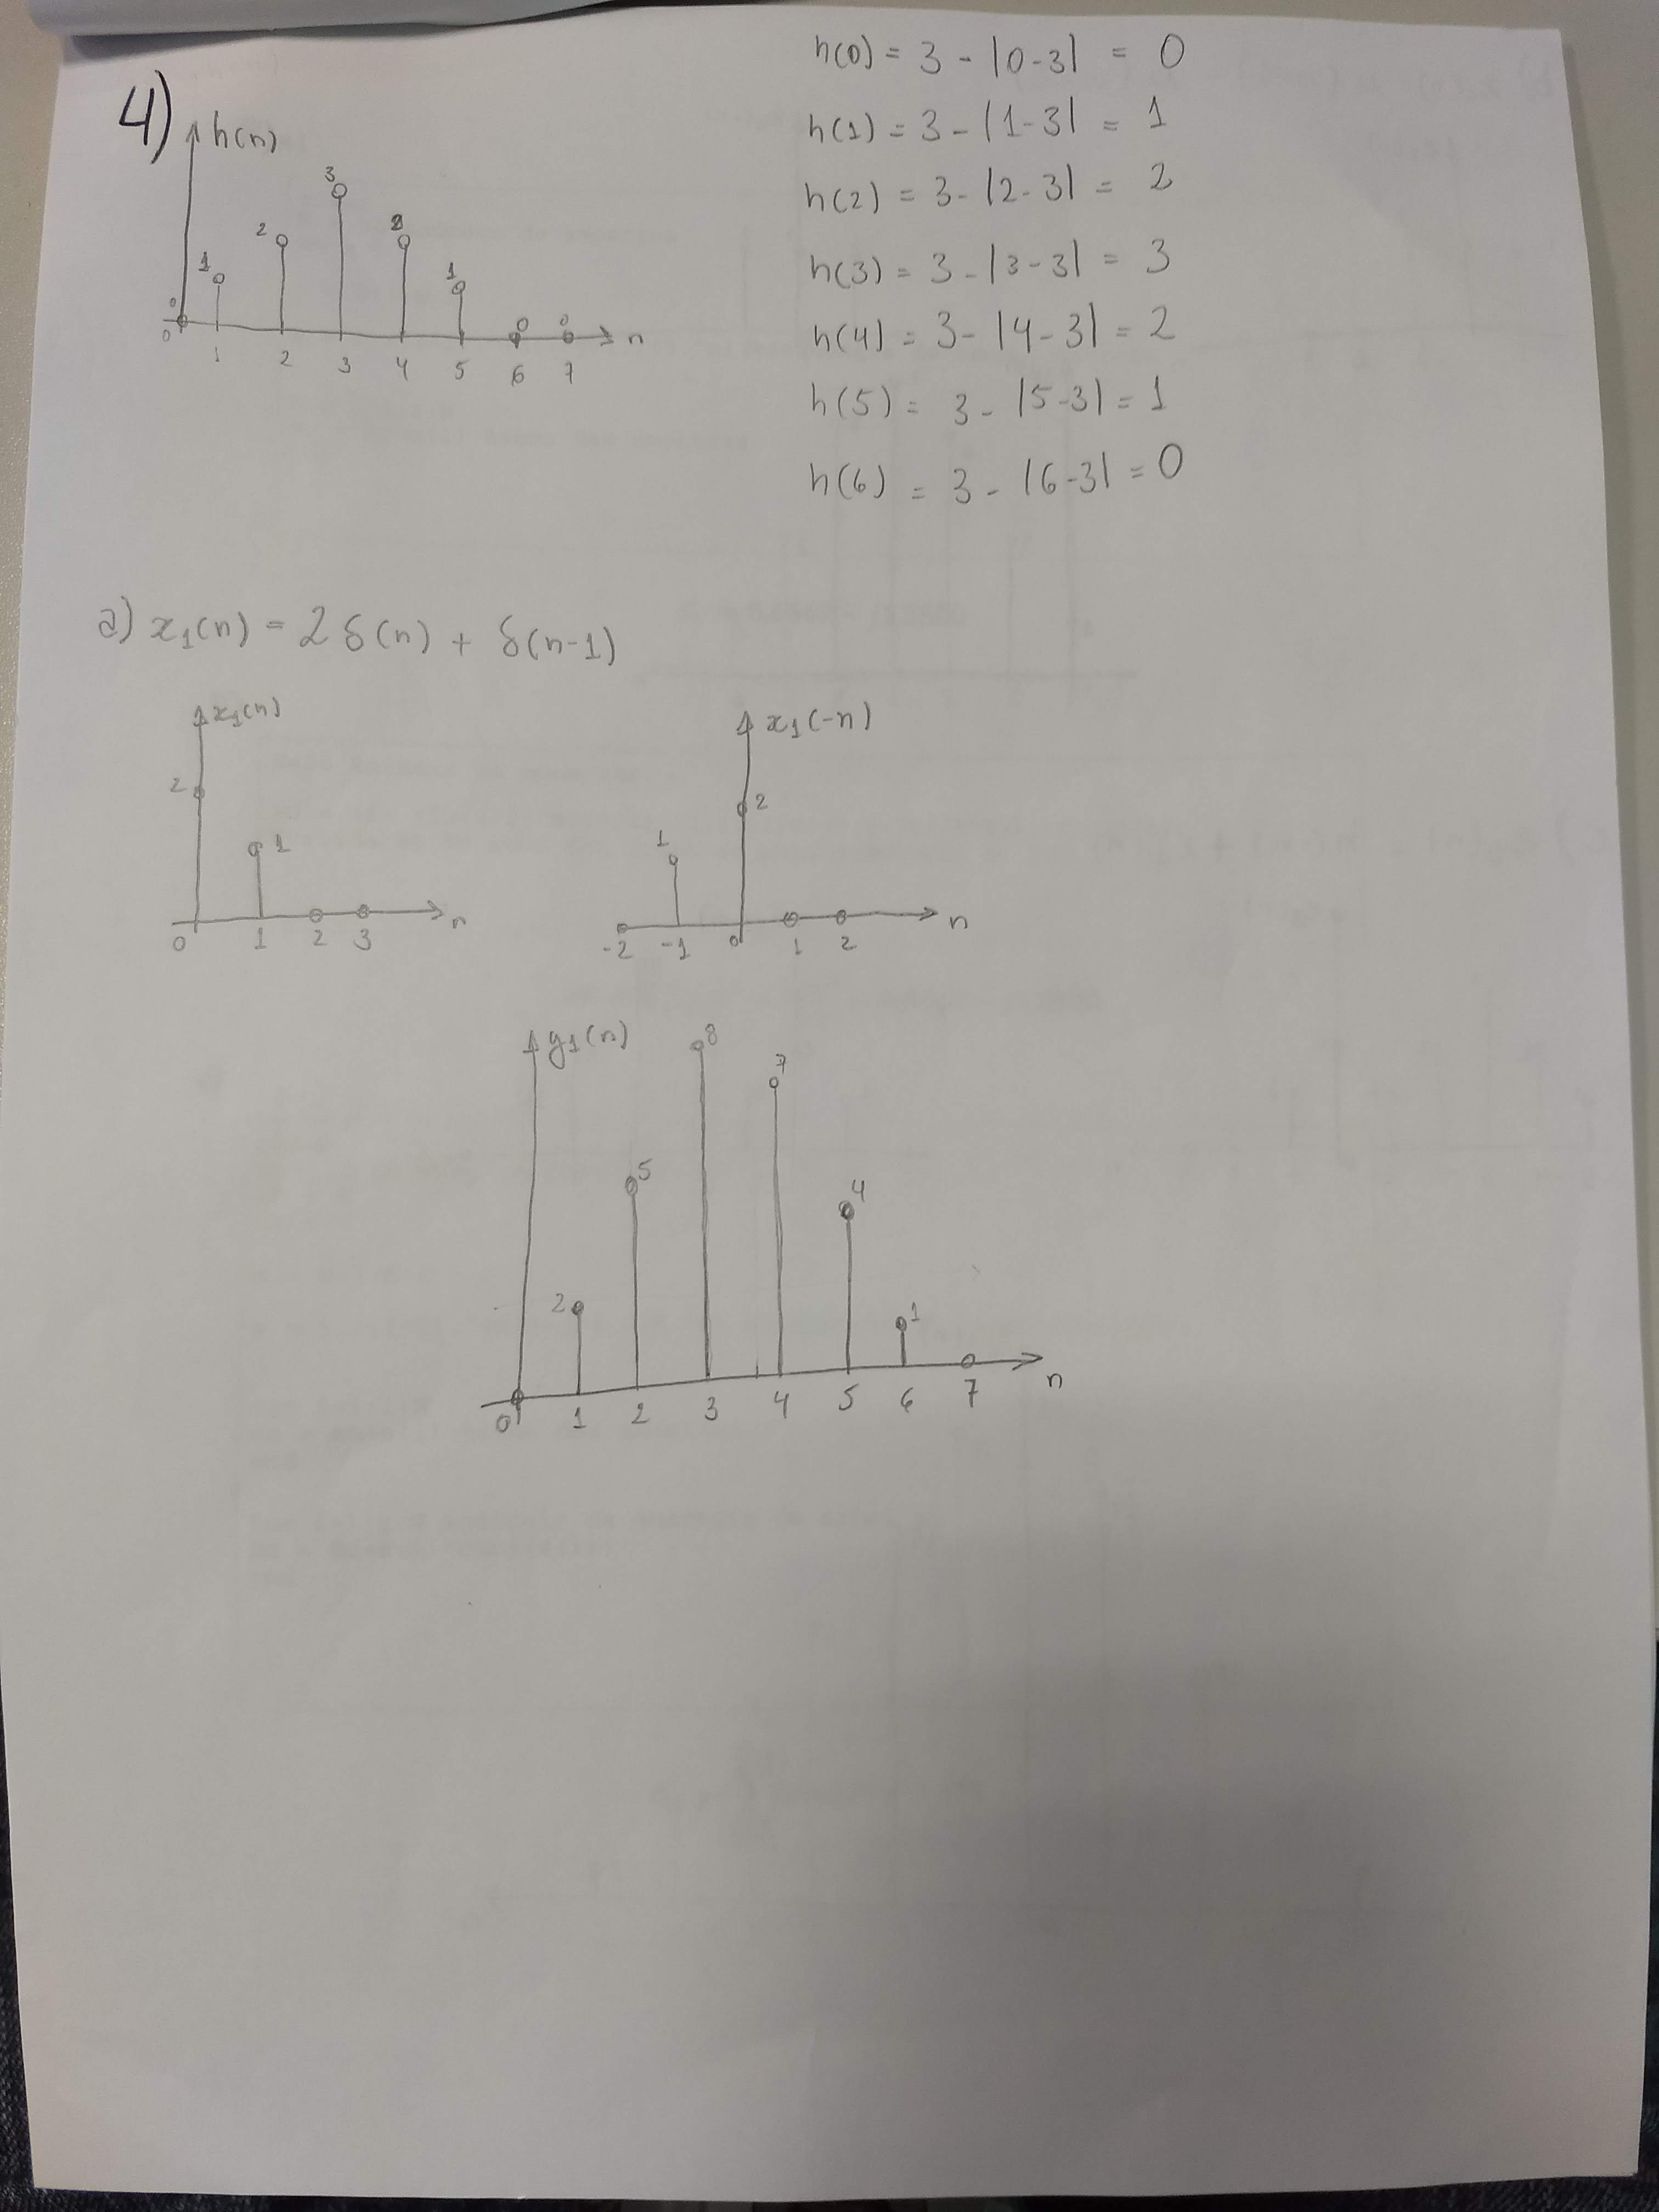 4)
h(n)
0 1 2 3 2 1 0 0
0 1 2 3 4 5 6 7 n
h(0) = 3 - |0-3| = 0
h(1) = 3 - |1-3| = 1
h(2) = 3 - |2-3| = 2
h(3) = 3 - |3-3| = 3
h(4) = 3 - |4-3| = 2
h(5) = 3 - |5-3| = 1
h(6) = 3 - |6-3| = 0
a) x₁(n) = 2 δ(n) + δ(n-1)
x₁(n)
2 1
0 1 2 3 n
x₁(-n)
1 2
-2 -1 0 1 2 n
y₁(n)
2 5 8 7 4 1
0 1 2 3 4 5 6 7 n